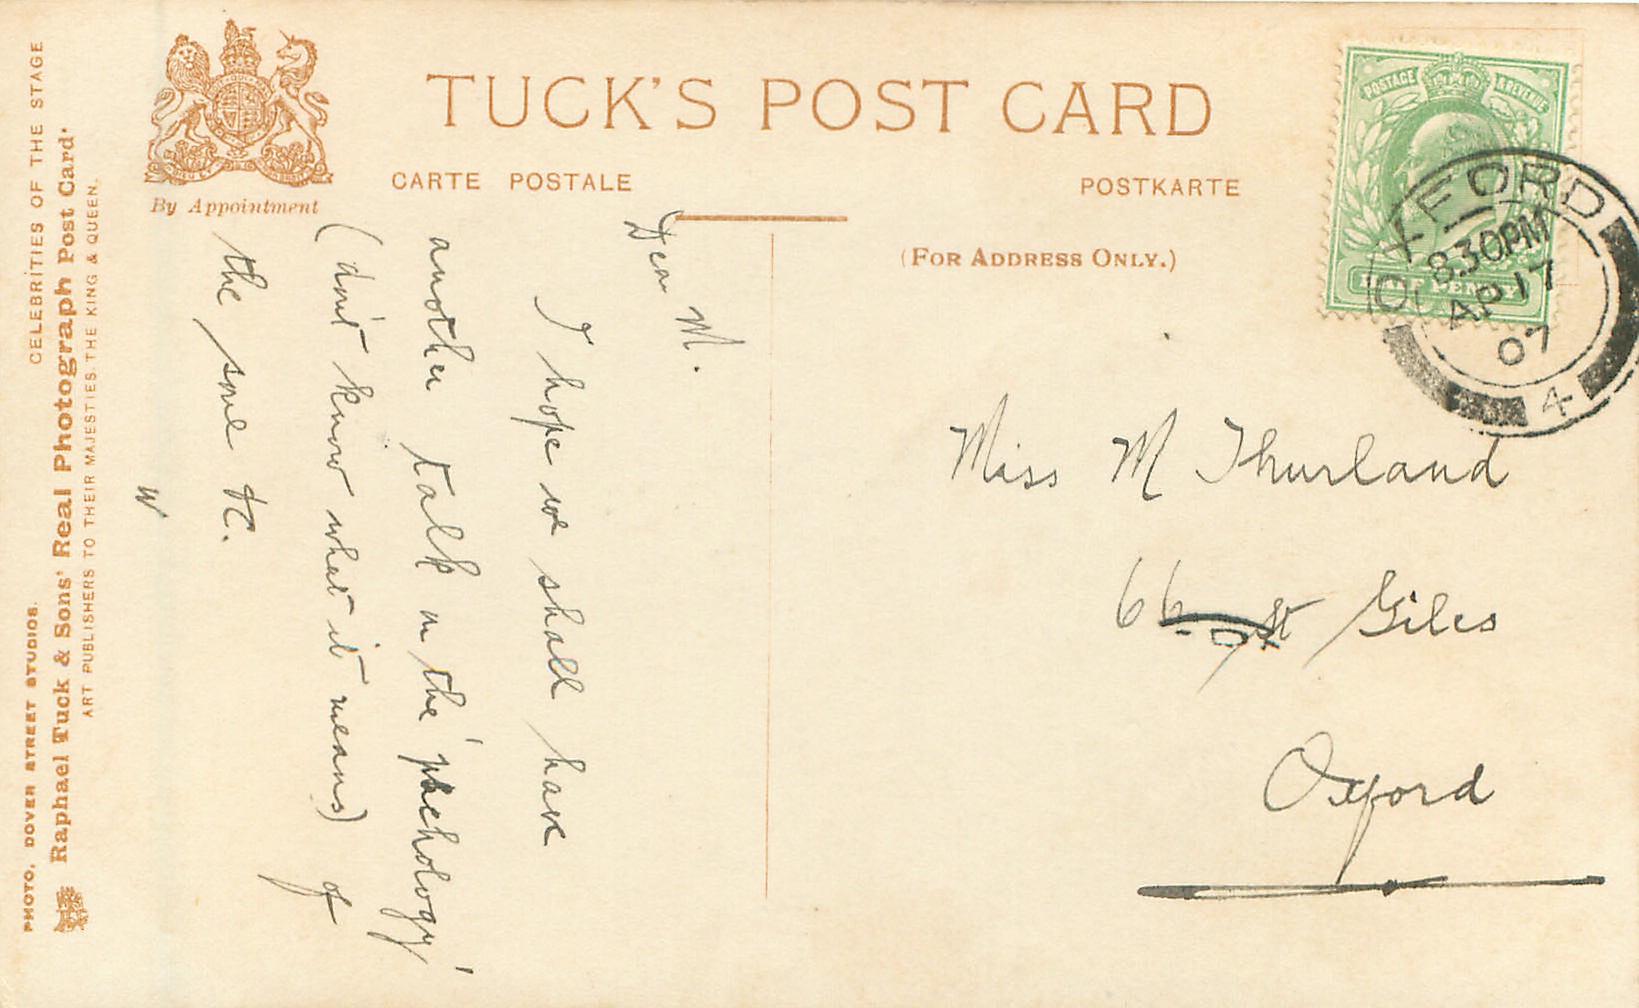 TUCK'S POST CARD
CARTE POSTALE
POSTKARTE
By Appointment
(FOR ADDRESS ONLY.)
CELEBRITIES OF THE STAGE
Raphael Tuck & Sons' "Real Photograph Post Card"
ART PUBLISHERS TO THEIR MAJESTIES THE KING & QUEEN.
PHOTO, DOVER STREET STUDIOS.
POSTAGE & REVENUE
HALF PENNY
OXFORD
8.30PM
AP 17
07
4
Dear M.
I hope we shall have
another talk on the 'phchology'
(don't know what it means) of
the soul &c.
W
Miss M Thurland
66. St Giles
Oxford